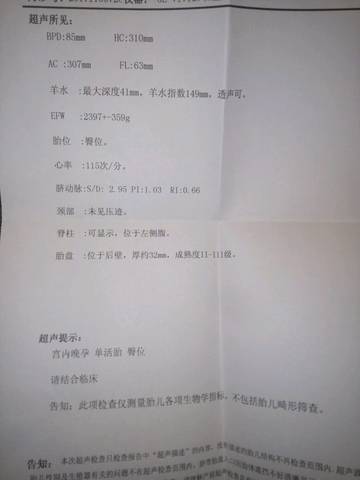 超声所见:
BPD:85mm HC:310mm
AC :307mm FL:63mm
羊水 :最大深度41mm, 羊水指数149mm, 透声可。
EFW :2397+-359g
胎位 :臀位。
心率 :115次/分。
脐动脉:S/D: 2.95 PI:1.03 RI:0.66
颈部 :未见压迹。
脊柱 :可显示, 位于左侧腹。
胎盘 :位于后壁, 厚约32mm, 成熟度II-III级。
超声提示:
宫内晚孕 单活胎 臀位
请结合临床
告知: 此项检查仅测量胎儿各项生物学指标, 不包括胎儿畸形筛查。
告知: 本次超声检查只检查报告中“超声描述”的内容,